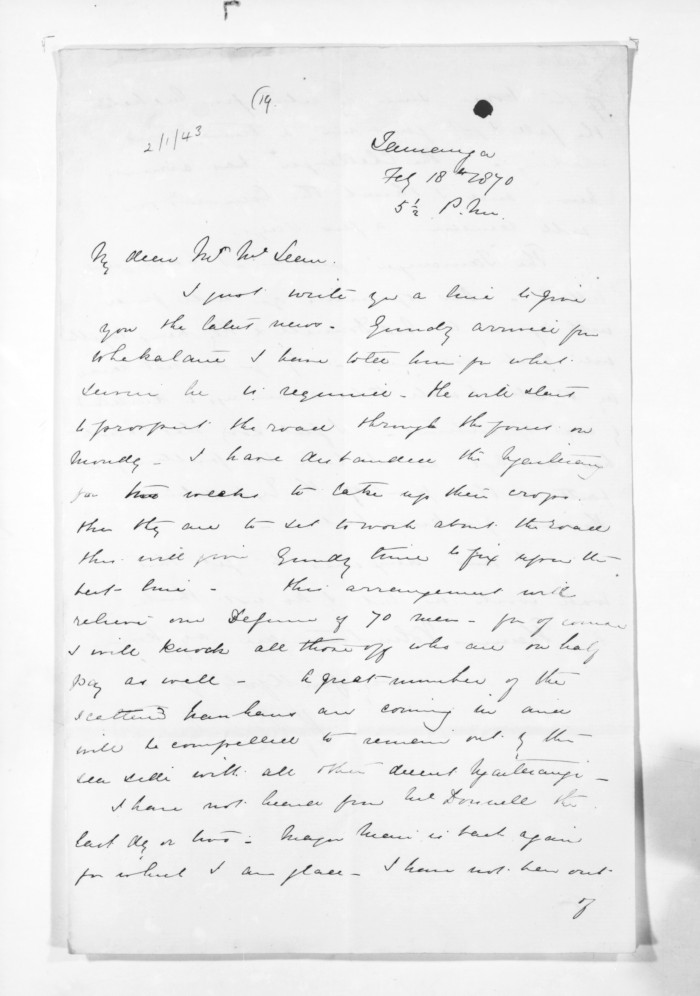 (19.
2/1/43
Tauranga
Feb 18th 1870
5½ P.M.
My dear Mr McLean.
I just write you a line to give
you the latest news - Gundry arrived from
Whakatane I have told him for what
service he is required - He will start
to prospect the road through the forest on
Monday - I have disbanded the Ngaiterangi
for two weeks to take up their crops.
then they are to set to work about the road
this will give Gundry time to fix upon the
best line - this arrangement will
relieve our Defence of 70 men - for of course
I will knock all those off who are on half
pay as well - A great number of the
scattered hauhaus are coming in and
will be compelled to remain out by the
sea side with all other decent Ngaiterangi -
I have not heard from McDonnell the
last day or two - Major Mair is back again
for which I am glad - I have not been out
of